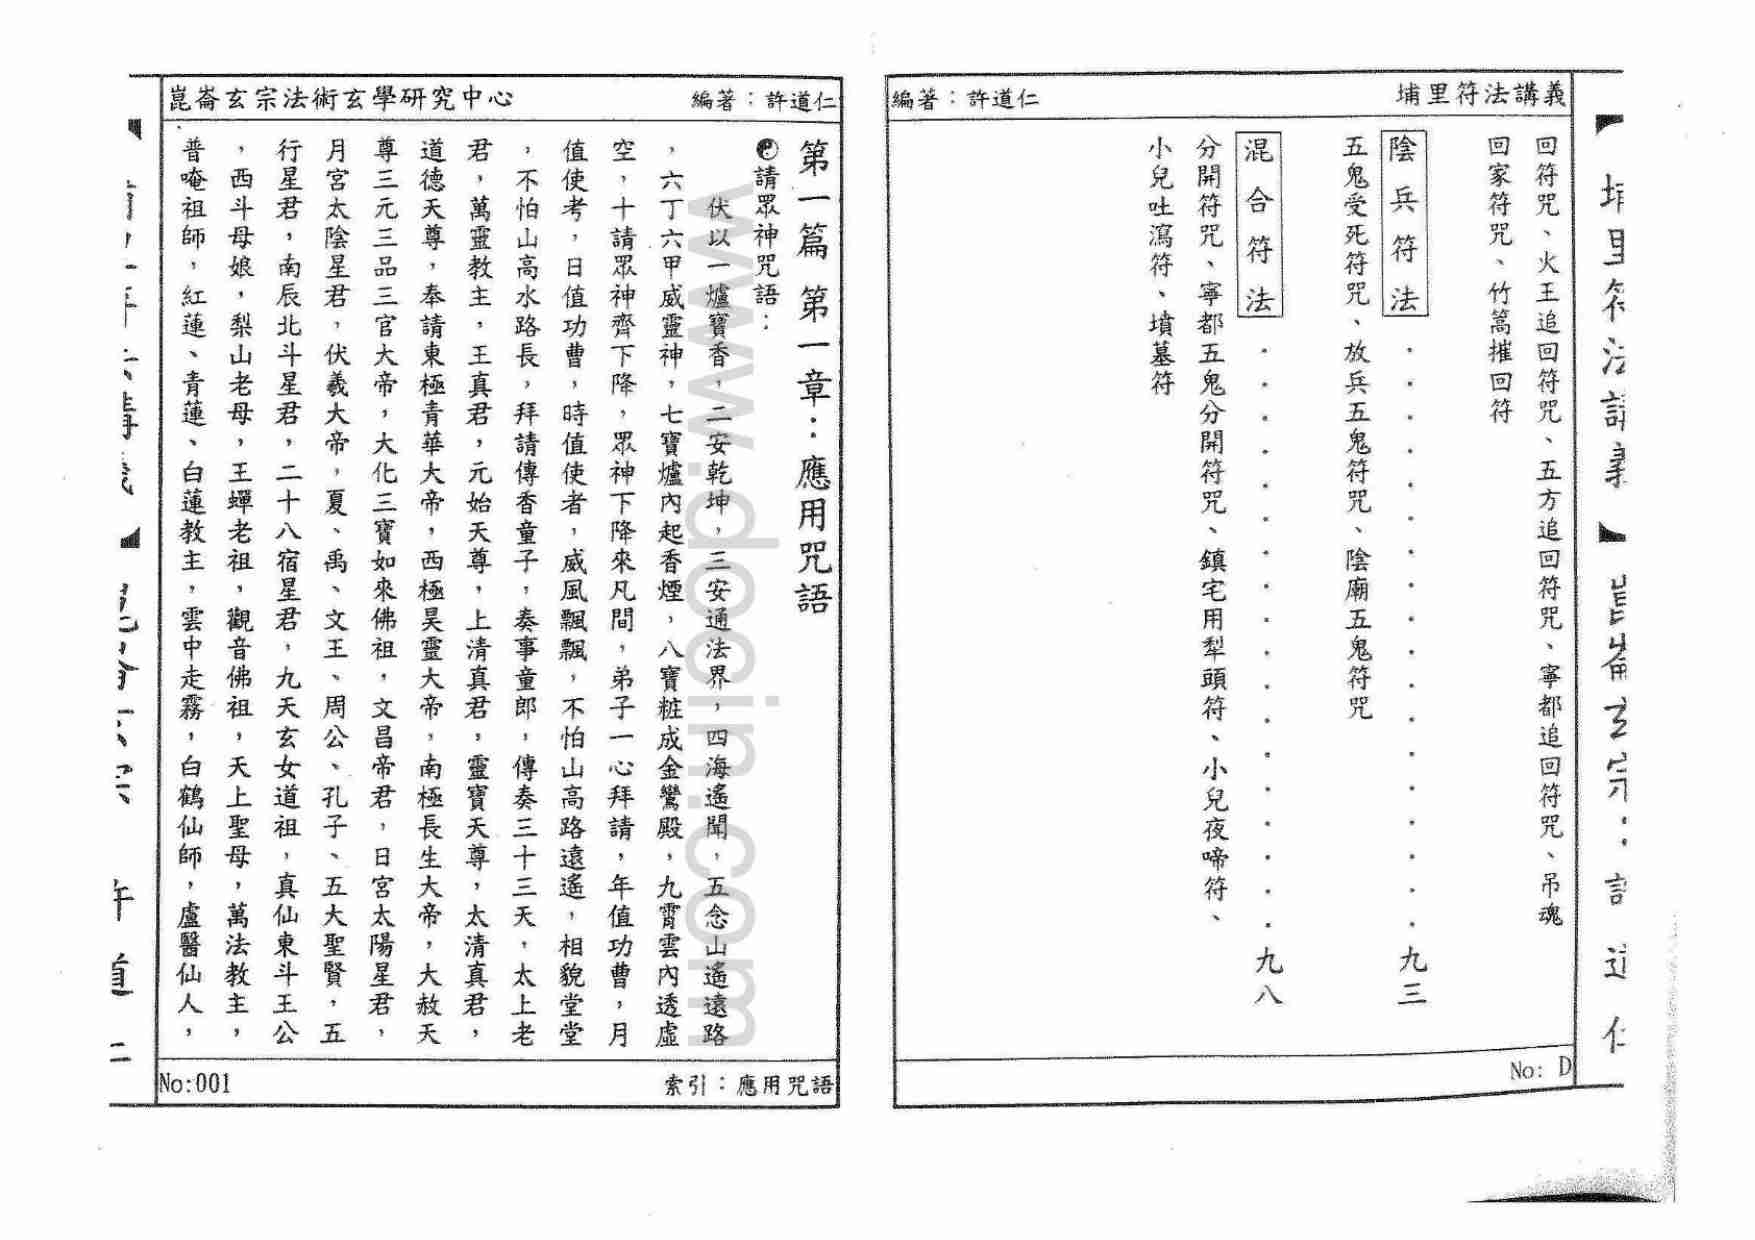 埔里符法講義
編著：許道仁
回符咒、火王追回符咒、五方追回符咒、寧都追回符咒、吊魂
回家符咒、竹篙摧回符
陰兵符法．．．．．．．．．．．．．．．．．．九三
五鬼受死符咒、放兵五鬼符咒、陰廟五鬼符咒
混合符法．．．．．．．．．．．．．．．．．．九八
分開符咒、寧都五鬼分開符咒、鎮宅用犁頭符、小兒夜啼符、
小兒吐瀉符、墳墓符
No: D
崑崙玄宗法術玄學研究中心
編著：許道仁
第一篇 第一章：應用咒語
☯請眾神咒語：
伏以一爐寶香，二安乾坤，三安通法界，四海遙聞，五念山遙遠路
，六丁六甲威靈神，七寶爐內起香煙，八寶粧成金鸞殿，九霄雲內透虛
空，十請眾神齊下降，眾神下降來凡間，弟子一心拜請，年值功曹，月
值使考，日值功曹，時值使者，威風飄飄，不怕山高路遠遙，相貌堂堂
，不怕山高水路長，拜請傳香童子，奏事童郎，傳奏三十三天，太上老
君，萬靈教主，王真君，元始天尊，上清真君，靈寶天尊，太清真君，
道德天尊，奉請東極青華大帝，西極昊靈大帝，南極長生大帝，大赦天
尊三元三品三官大帝，大化三寶如來佛祖，文昌帝君，日宮太陽星君，
月宮太陰星君，伏羲大帝，夏、禹、文王、周公、孔子、五大聖賢，五
行星君，南辰北斗星君，二十八宿星君，九天玄女道祖，真仙東斗王公
，西斗母娘，梨山老母，王蟬老祖，觀音佛祖，天上聖母，萬法教主，
普唵祖師，紅蓮、青蓮、白蓮教主，雲中走霧，白鶴仙師，盧醫仙人，
索引：應用咒語
No:001
www.docin.com